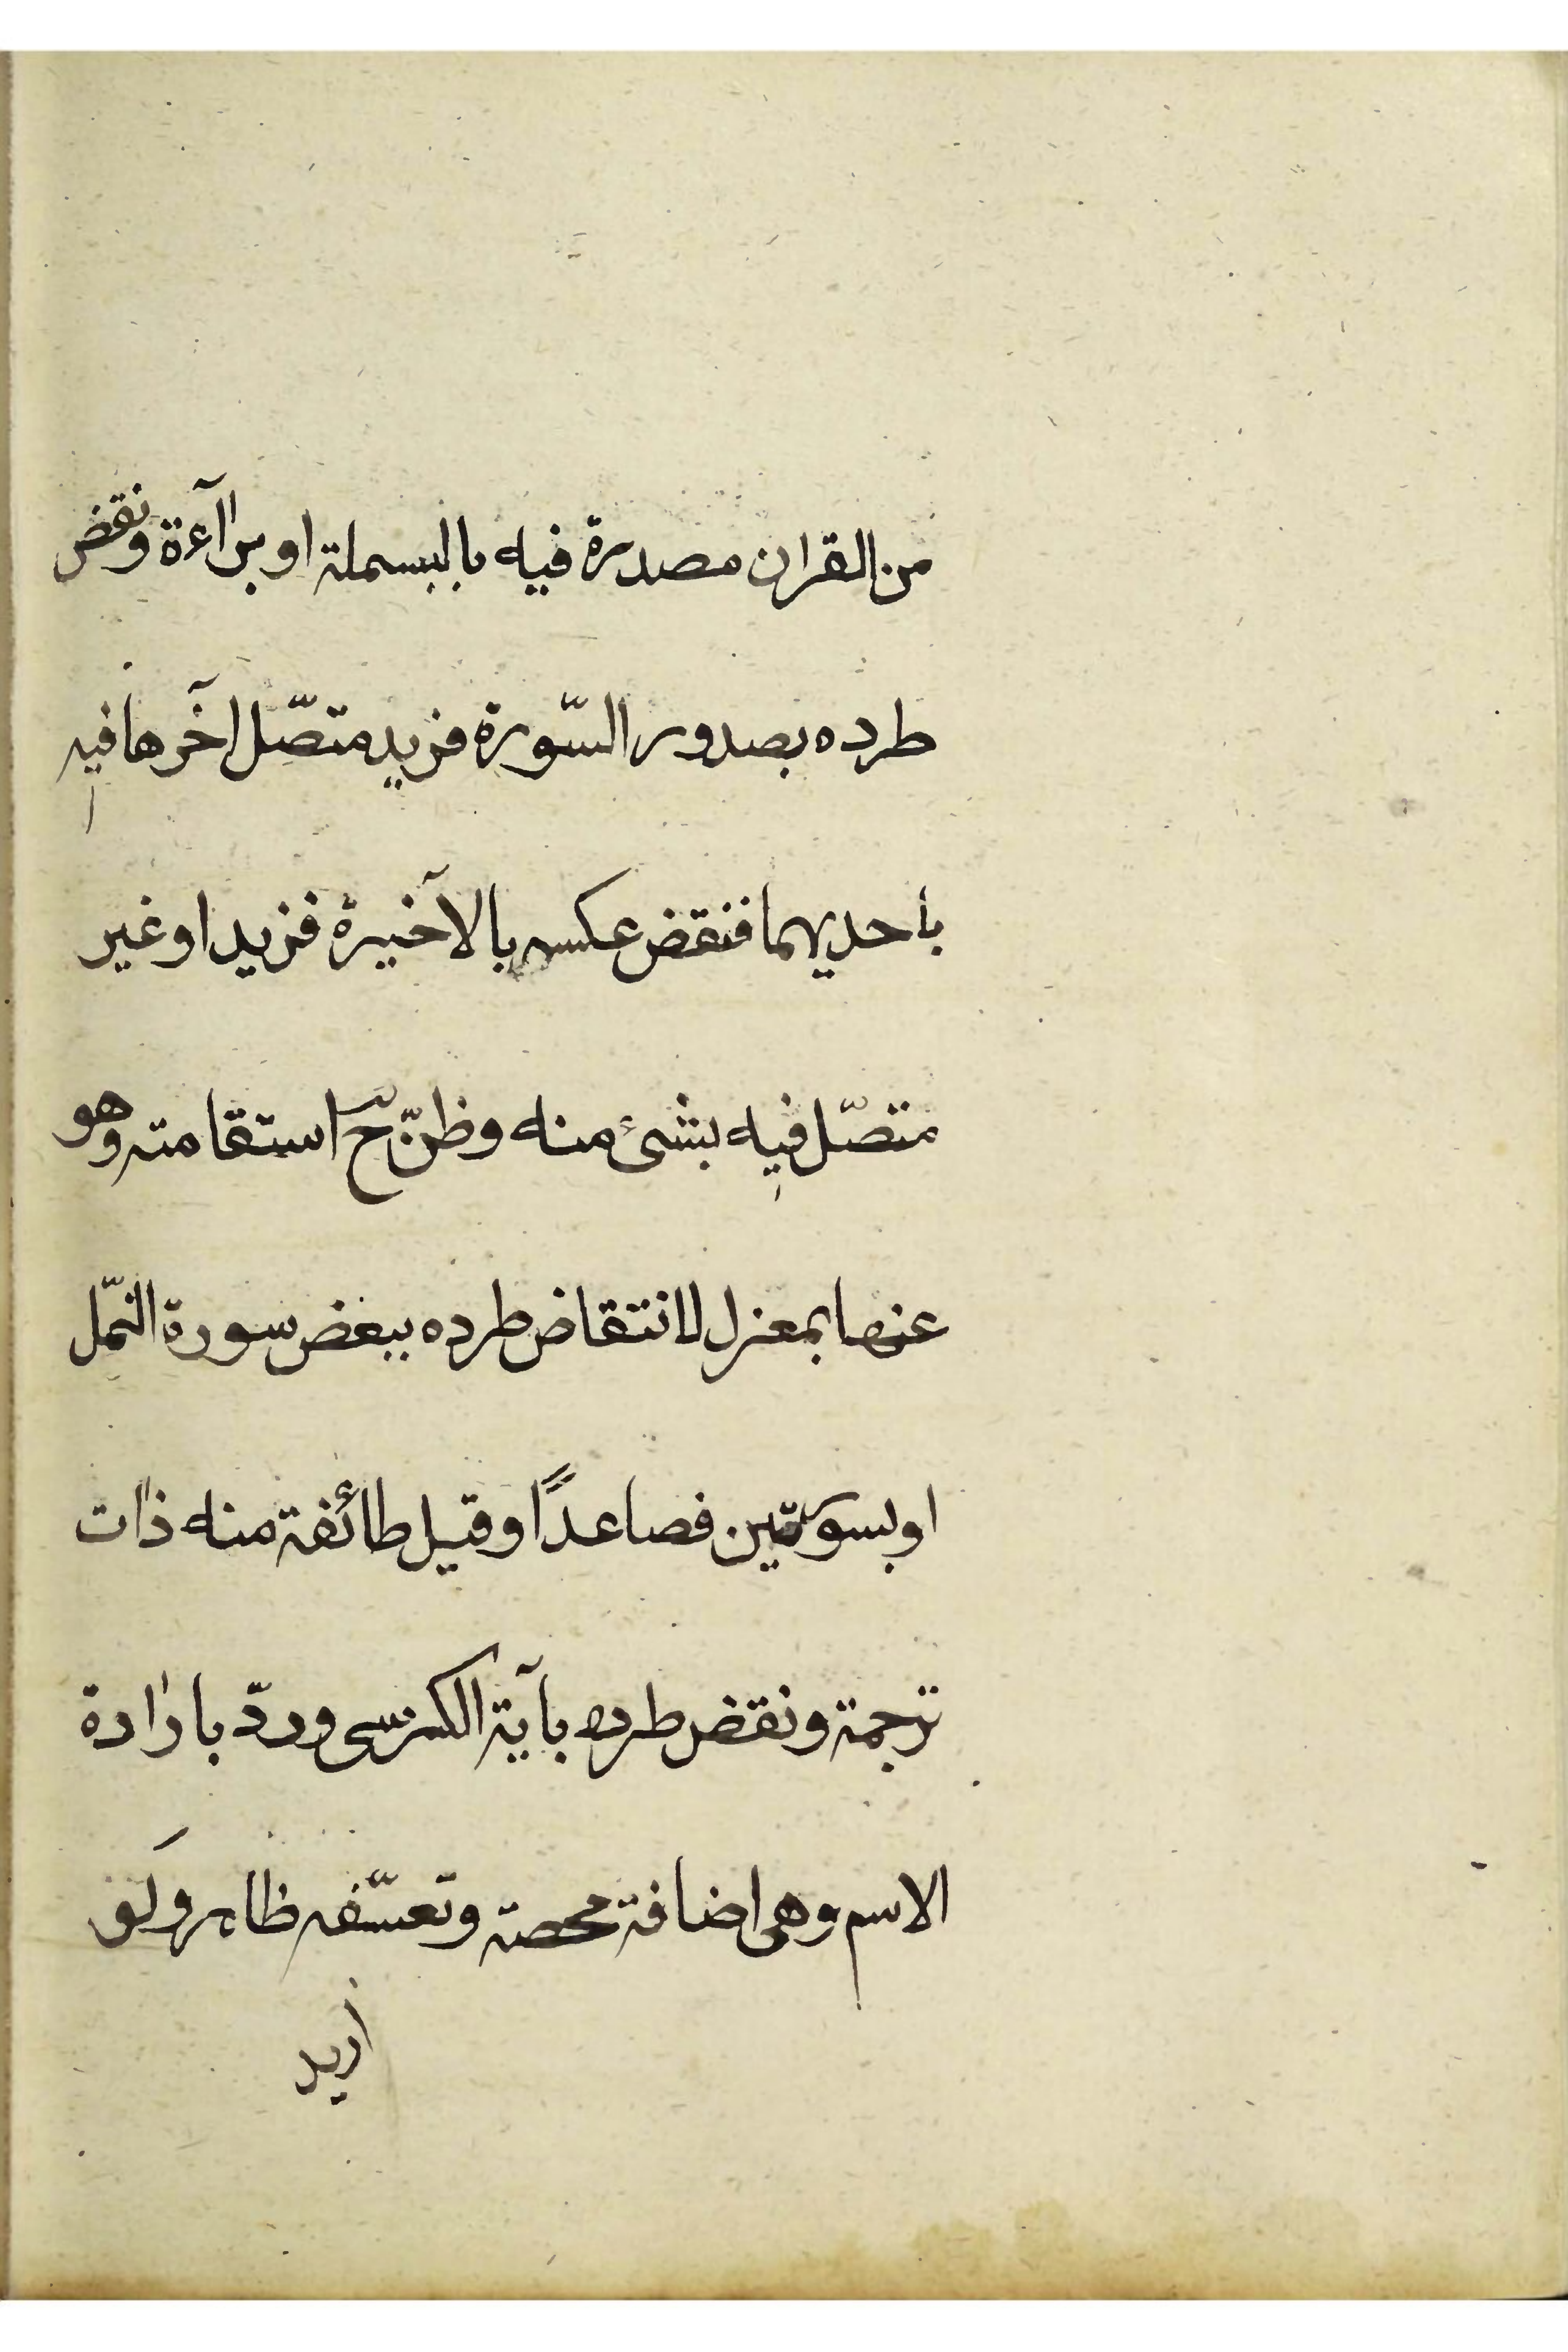 من القران مصدرة فيه بالبسملة او برآءة ونقض
طرده بصدور السّورة فزيد متصّل اخٓرها فيه
بأحديهما فنقض عكسه بالاخٓيرة فزيد او غير
متصّل فيه بشئ منه وظنّ حٓ استقامته وهو
عنها بمعزل لانتقاض طرده ببعض سورة النمّل
او بسورتين فصاعدًا وقيل طائفة منه ذات
ترجمة ونقض طرده بآية الكرسى وردّ بارادة
الاسم وهى اضافة محضة وتعسّفه ظاهر ولو
اريد